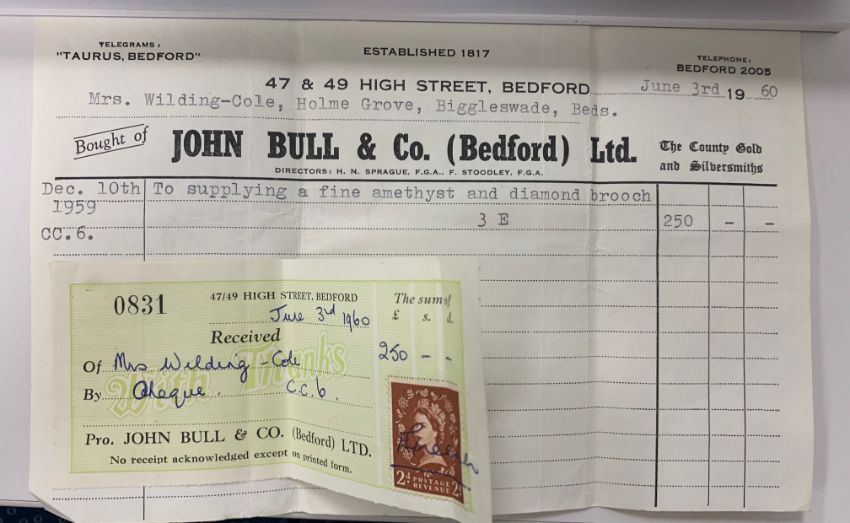 TELEGRAMS:
"TAURUS, BEDFORD"
ESTABLISHED 1817
TELEPHONE:
BEDFORD 2005
47 & 49 HIGH STREET, BEDFORD June 3rd 19 60
Mrs. Wilding-Cole, Holme Grove, Biggleswade, Beds.
Bought of JOHN BULL & Co. (Bedford) Ltd. The County Gold and Silversmiths
DIRECTORS: H. N. SPRAGUE, F.G.A., F. STOODLEY, F.G.A.
Dec. 10th To supplying a fine amethyst and diamond brooch
1959 3 E 250 - -
CC.6.
0831
47/49 HIGH STREET, BEDFORD
The sum of
£ s. d.
June 3rd 1960
Received
With Thanks
Of Mrs Wilding-Cole 250 - -
By Cheque. C.C.6.
Pro. JOHN BULL & CO. (Bedford) LTD.
No receipt acknowledged except on printed form.
2d POSTAGE REVENUE 2d